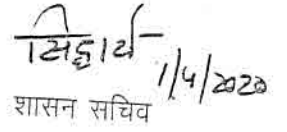 सिद्धार्थ
1/4/2020
शासन सचिव